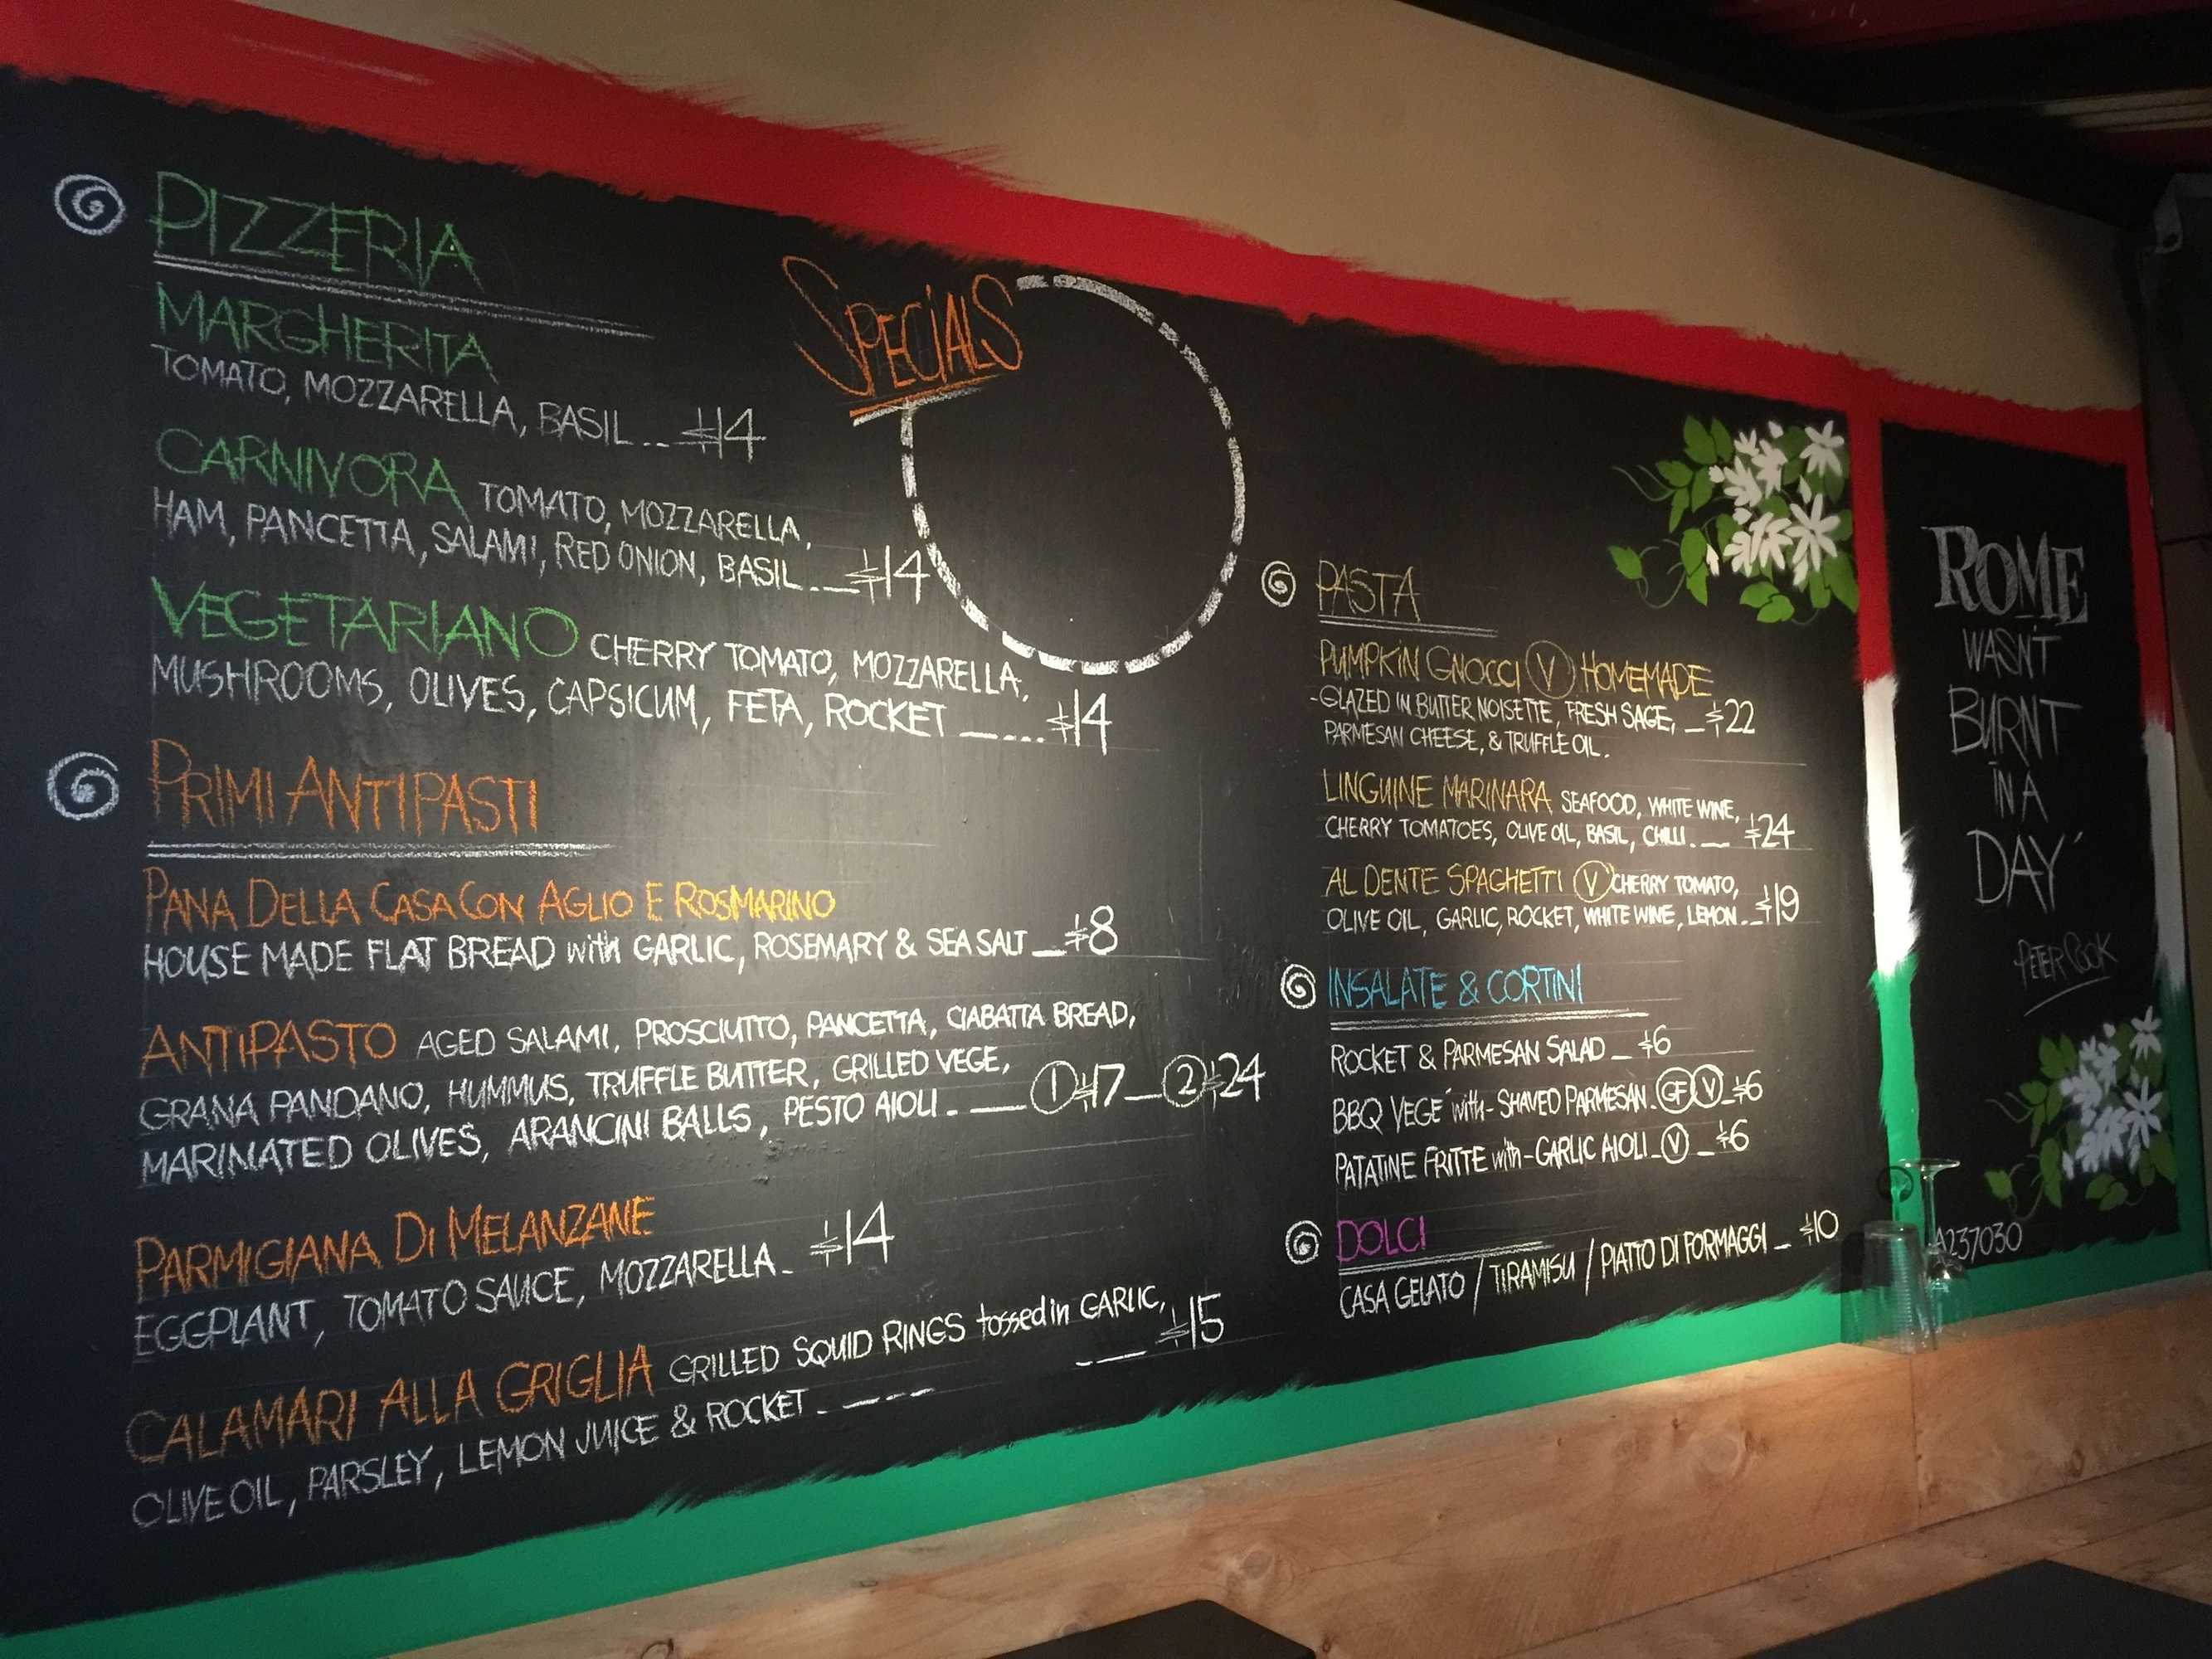 PIZZERIA
MARGHERITA
TOMATO, MOZZARELLA, BASIL... $14
CARNIVORA TOMATO, MOZZARELLA,
HAM, PANCETTA, SALAMI, RED ONION, BASIL... $14
VEGETARIANO CHERRY TOMATO, MOZZARELLA,
MUSHROOMS, OLIVES, CAPSICUM, FETA, ROCKET ..... $14
PRIMI ANTIPASTI
PANA DELLA CASA CON AGLIO E ROSMARINO
HOUSE MADE FLAT BREAD with GARLIC, ROSEMARY & SEA SALT _ $8
ANTIPASTO AGED SALAMI, PROSCIUTTO, PANCETTA, CIABATTA BREAD,
GRANA PANDANO, HUMMUS, TRUFFLE BUTTER, GRILLED VEGE,
MARINATED OLIVES, ARANCINI BALLS, PESTO AIOLI. __ 1 $17 _ 2 $24
PARMIGIANA DI MELANZANE
EGGPLANT, TOMATO SAUCE, MOZZARELLA. $14
CALAMARI ALLA GRIGLIA GRILLED SQUID RINGS tossed in GARLIC,
OLIVE OIL, PARSLEY, LEMON JUICE & ROCKET . --- --- $15
SPECIALS
PASTA
PUMPKIN GNOCCI V HOMEMADE
-GLAZED IN BUTTER NOISETTE, FRESH SAGE, _ $22
PARMESAN CHEESE, & TRUFFLE OIL.
LINGUINE MARINARA SEAFOOD, WHITE WINE,
CHERRY TOMATOES, OLIVE OIL, BASIL, CHILLI. _ $24
AL DENTE SPAGHETTI V CHERRY TOMATO,
OLIVE OIL, GARLIC, ROCKET, WHITE WINE, LEMON.. $19
INSALATE & CORTINI
ROCKET & PARMESAN SALAD _ $6
BBQ VEGE with- SHAVED PARMESAN. GF V _ $6
PATATINE FRITTE with-GARLIC AIOLI _ V _ $6
DOLCI
CASA GELATO / TIRAMISU / PIATTO DI FORMAGGI _ $10
ROME
WASN'T
BURNT
IN A
DAY'
PETER COOK
A237030